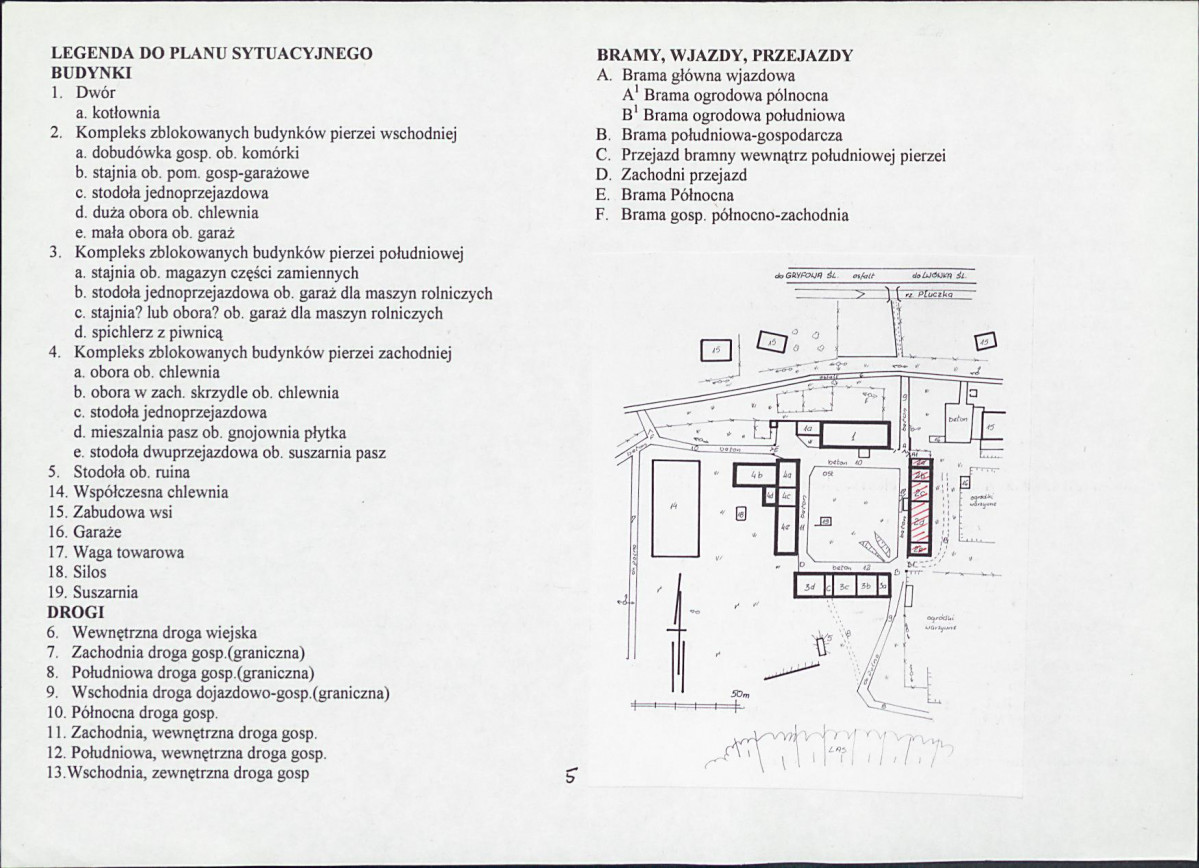 LEGENDA DO PLANU SYTUACYJNEGO
BUDYNKI
1. Dwór
a. kotłownia
2. Kompleks zblokowanych budynków pierzei wschodniej
a. dobudówka gosp. ob. komórki
b. stajnia ob. pom. gosp-garażowe
c. stodoła jednoprzejazdowa
d. duża obora ob. chlewnia
e. mała obora ob. garaż
3. Kompleks zblokowanych budynków pierzei południowej
a. stajnia ob. magazyn części zamiennych
b. stodoła jednoprzejazdowa ob. garaż dla maszyn rolniczych
c. stajnia? lub obora? ob. garaż dla maszyn rolniczych
d. spichlerz z piwnicą
4. Kompleks zblokowanych budynków pierzei zachodniej
a. obora ob. chlewnia
b. obora w zach. skrzydle ob. chlewnia
c. stodoła jednoprzejazdowa
d. mieszalnia pasz ob. gnojownia płytka
e. stodoła dwuprzejazdowa ob. suszarnia pasz
5. Stodoła ob. ruina
14. Współczesna chlewnia
15. Zabudowa wsi
16. Garaże
17. Waga towarowa
18. Silos
19. Suszarnia
DROGI
6. Wewnętrzna droga wiejska
7. Zachodnia droga gosp.(graniczna)
8. Południowa droga gosp.(graniczna)
9. Wschodnia droga dojazdowo-gosp.(graniczna)
10. Północna droga gosp.
11. Zachodnia, wewnętrzna droga gosp.
12. Południowa, wewnętrzna droga gosp.
13.Wschodnia, zewnętrzna droga gosp
BRAMY, WJAZDY, PRZEJAZDY
A. Brama główna wjazdowa
A¹ Brama ogrodowa pólnocna
B¹ Brama ogrodowa południowa
B. Brama południowa-gospodarcza
C. Przejazd bramny wewnątrz południowej pierzei
D. Zachodni przejazd
E. Brama Północna
F. Brama gosp. północno-zachodnia
do GRYFOWA ŚL. asfalt do LWÓWKA ŚL.
rz. Płuczka
15
15
15
asfalt
beton
15
1a
1
beton
beton 10
4b
4a
4d
4c
4e
14
18
19
ogródki
warzywne
2d
D
beton 12
B
3d
C
3c
3b
3a
ogródki
warzywne
5
50m
LAS
5